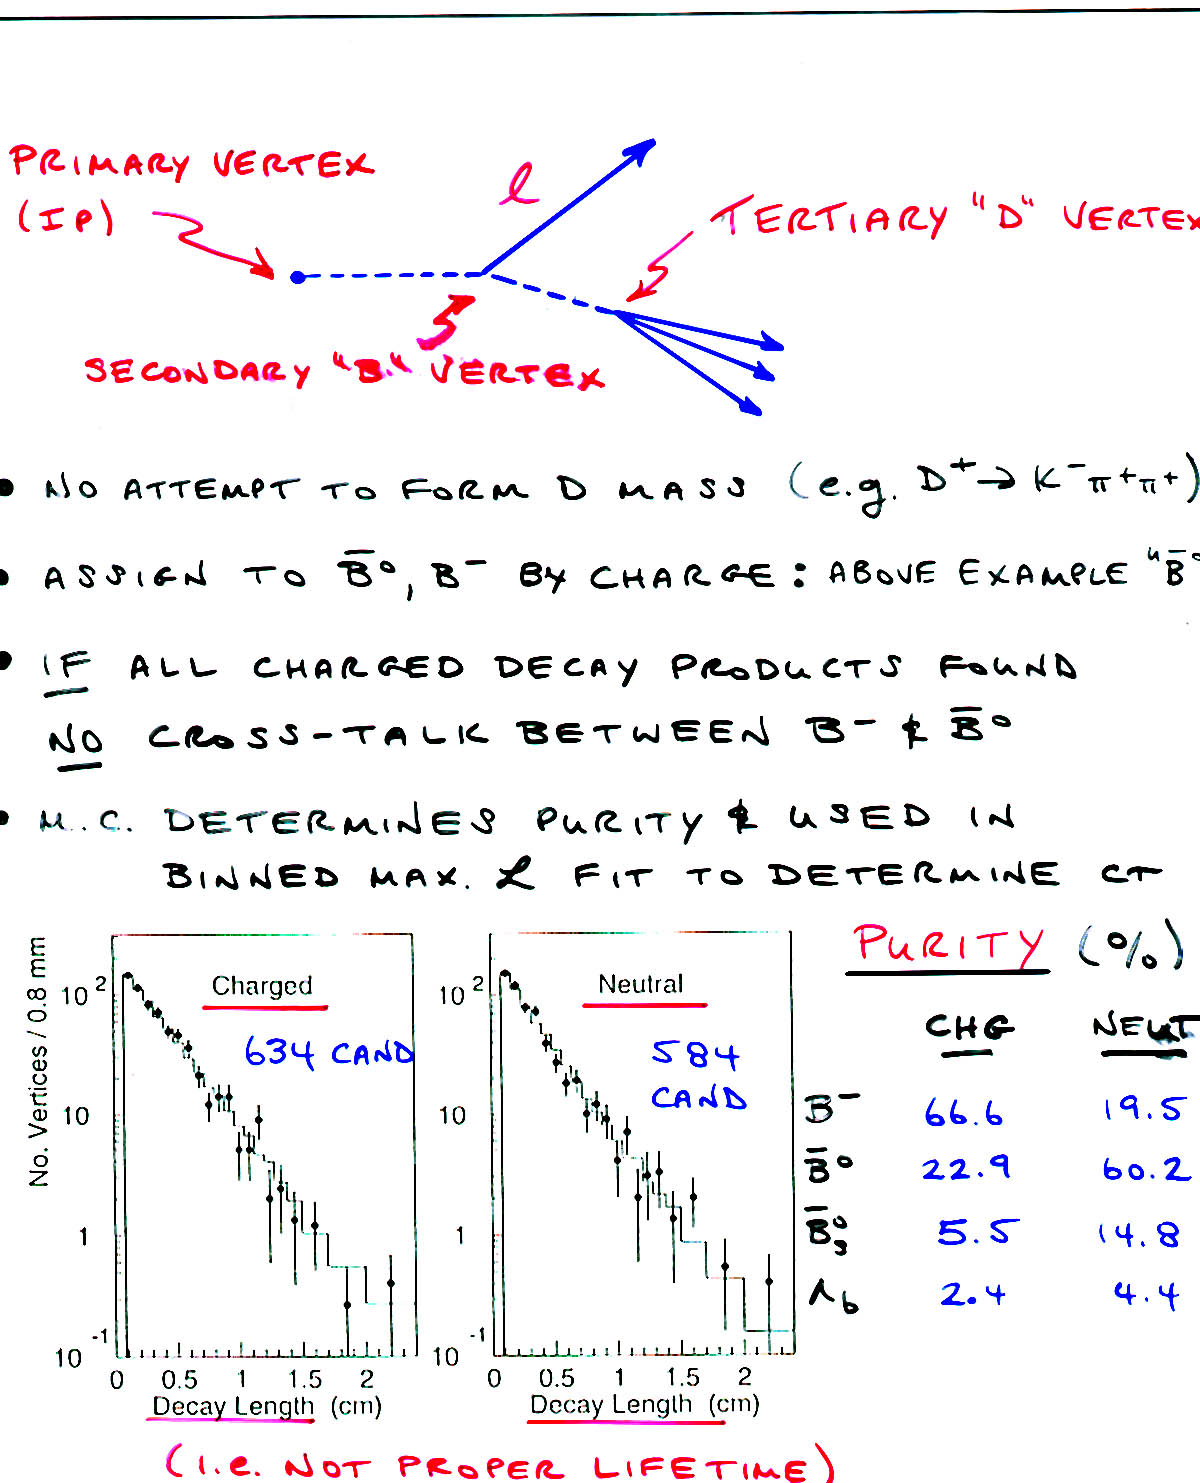 PRIMARY VERTEX
(IP)
l
TERTIARY "D" VERTEX
SECONDARY "B" VERTEX
• NO ATTEMPT TO FORM D MASS (e.g. D⁺→ K⁻π⁺π⁺)
• ASSIGN TO B̄⁰, B⁻ BY CHARGE: ABOVE EXAMPLE "B̄⁰
• IF ALL CHARGED DECAY PRODUCTS FOUND
NO CROSS-TALK BETWEEN B⁻ & B̄⁰
• M.C. DETERMINES PURITY & USED IN
BINNED MAX. ℒ FIT TO DETERMINE cτ
No. Vertices / 0.8 mm
10² 10 1 10⁻¹
Charged
634 CAND
0 0.5 1 1.5 2
Decay Length (cm)
10² 10 1 10⁻¹
Neutral
584
CAND
0 0.5 1 1.5 2
Decay Length (cm)
(i.e. NOT PROPER LIFETIME)
PURITY (%)
CHG NEUT
B⁻ 66.6 19.5
B̄⁰ 22.9 60.2
B̄⁰s 5.5 14.8
Λb 2.4 4.4